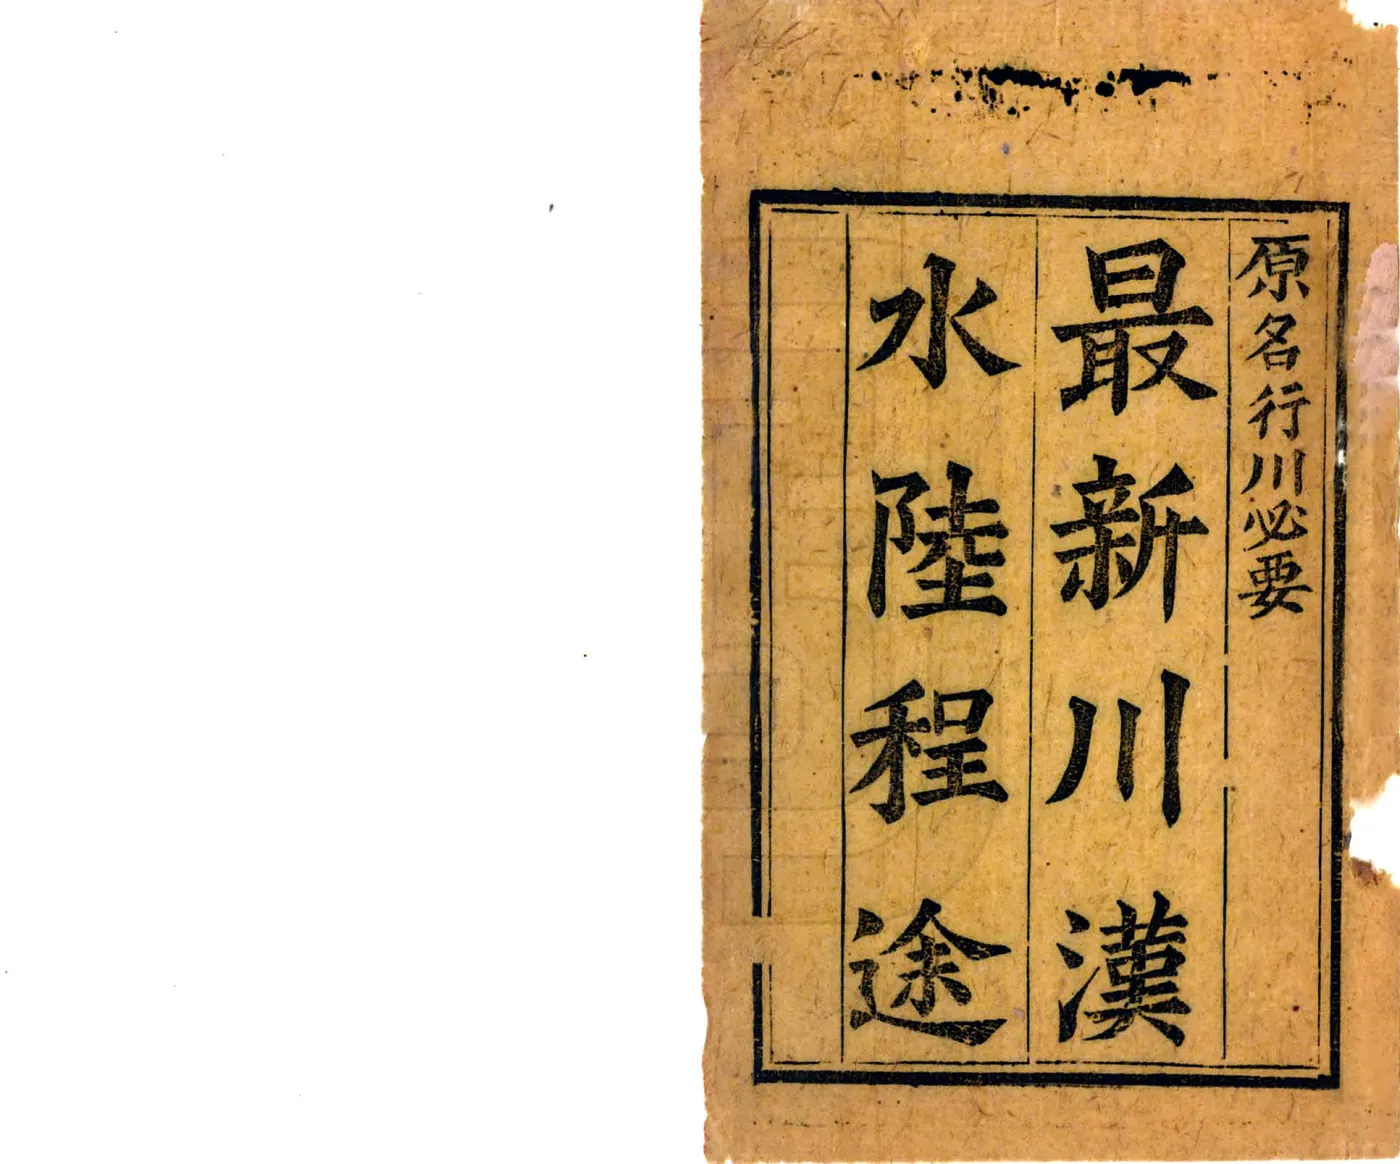 原名行川必要
最新川漢
水陸程途